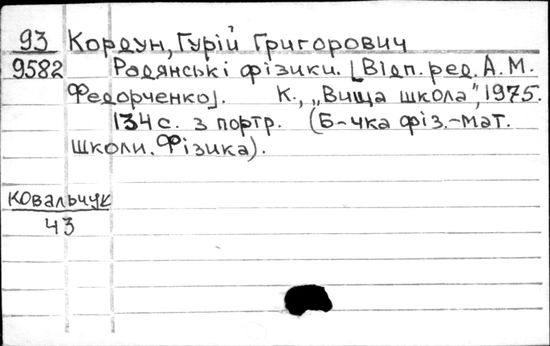 93 Кордун, Гурій Григорович
9582 Радянські фізики. [Відп. ред. А. М.
Федорченко]. К., „Вища школа", 1975.
134 с. з портр. (Б-чка фіз.-мат.
школи. Фізика).
Ковальчук
43